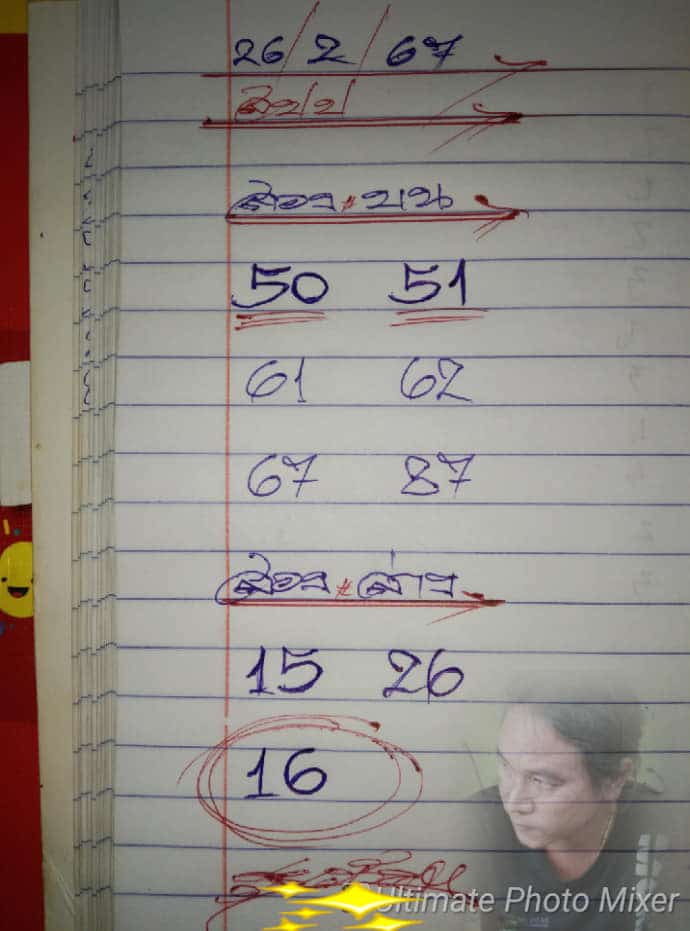 26/2/67
สอง # บน
50 51
61 62
67 87
สอง # ล่าง
15 26
16
Ultimate Photo Mixer